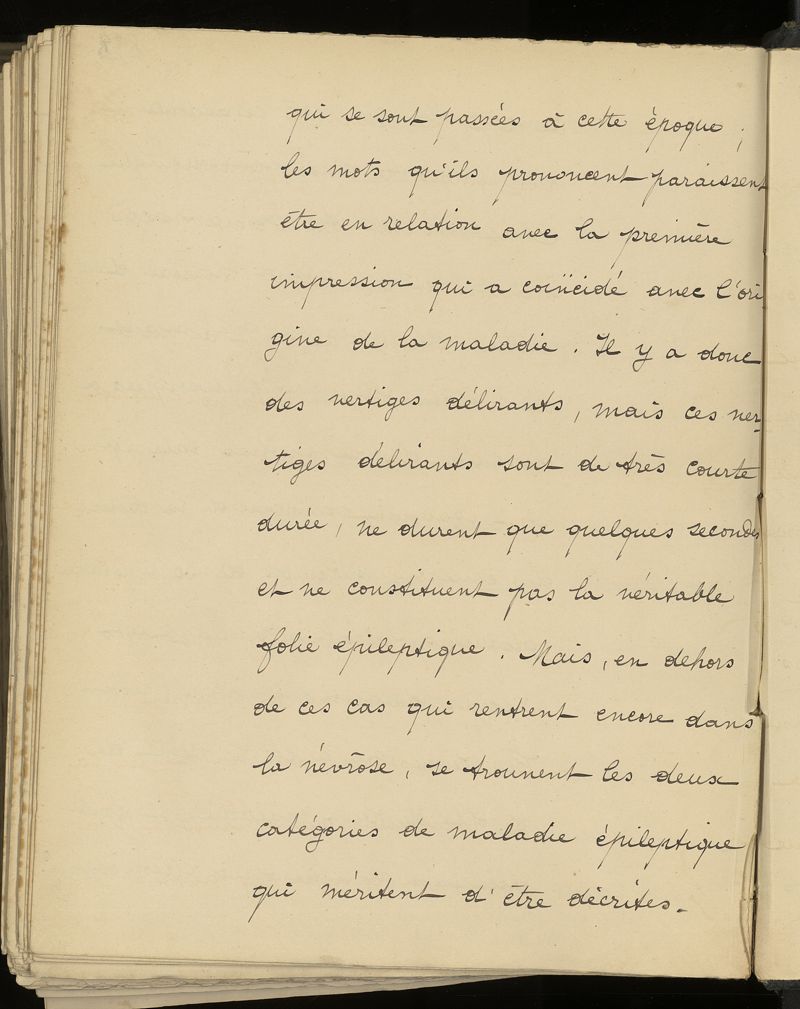 qui se sont passées à cette époque ;
les mots qu'ils prononcent paraissent
être en relation avec la première
impression qui a coïncidé avec l'ori
gine de la maladie. Il y a donc
des vertiges délirants, mais ces ver-
tiges délirants sont de très courte
durée, ne durent que quelques secondes
et ne constituent pas la véritable
folie épileptique. Mais, en dehors
de ces cas qui rentrent encore dans
la névrose, se trouvent les deux
catégories de maladie épileptique
qui méritent d'être décrites.